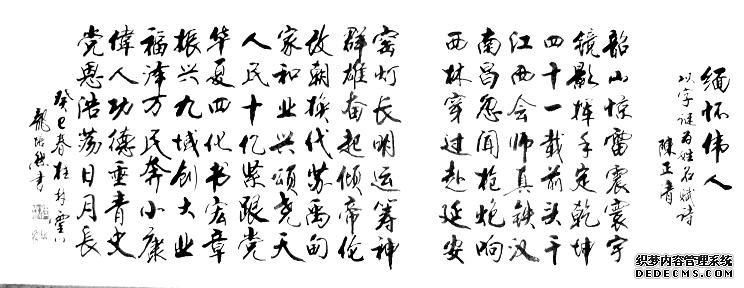 缅怀伟人
以字谜为姓名赋诗
陈正青
韶山惊雷震寰宇
镜影挥手定乾坤
四十一载前头干
江西会师真铁汉
南昌忽闻枪炮响
西林穿过赴延安
窑灯长明运筹神
群雄奋起倾帝伦
改朝换代苏禹甸
家和业兴颂尧天
人民十亿紧跟党
华夏四化书宏章
振兴九域创大业
福泽万民奔小康
偉人功德垂青史
党恩浩荡日月长
癸巳春
书
织梦内容管理系统
DEDECMS.COM